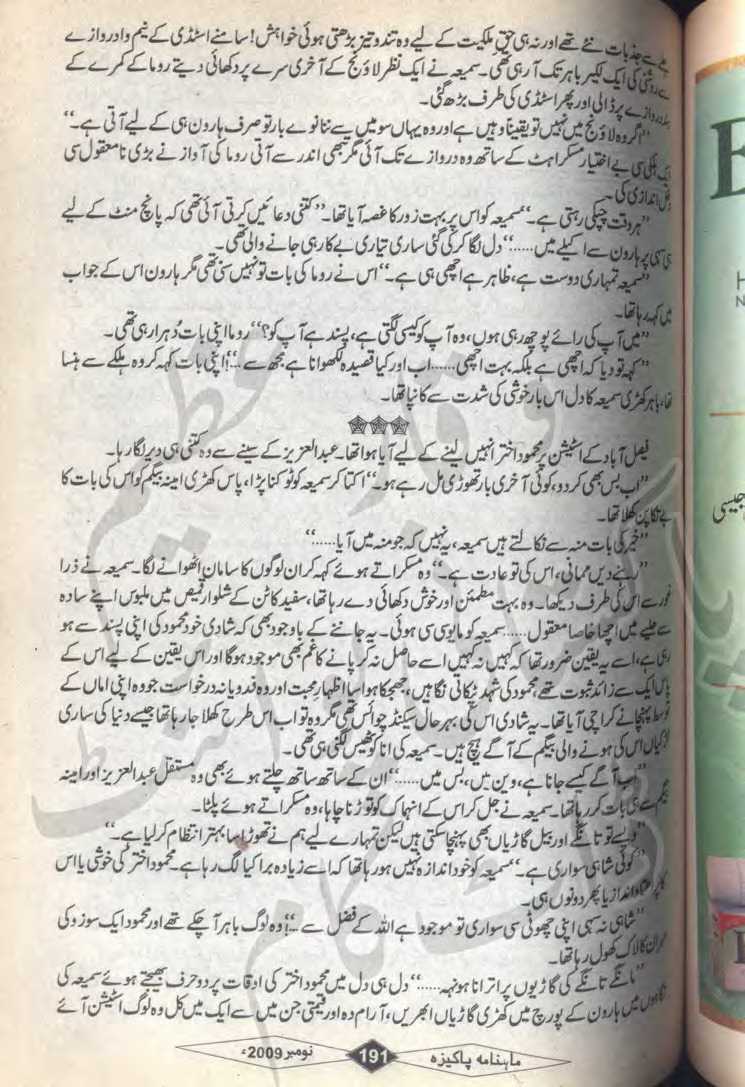 جذبات نئے تھے اور نہ ہی حقِ ملکیت کے لیے وہ تند و تیز بڑھتی ہوئی خواہش! سامنے اسٹڈی کے نیم وا دروازے
سے روشنی کی ایک لکیر باہر تک آ رہی تھی۔ سمیعہ نے ایک نظر لاؤنج کے آخری سرے پر دکھائی دیتے روما کے کمرے کے
دروازے پر ڈالی اور پھر اسٹڈی کی طرف بڑھ گئی۔
’’اگر وہ لاؤنج میں نہیں تو یقیناً وہیں ہے اور وہ یہاں سو میں سے ننانوے بار تو صرف ہارون ہی کے لیے آتی ہے۔‘‘
ہلکی سی بے اختیار مسکراہٹ کے ساتھ وہ دروازے تک آئی مگر تبھی اندر سے آتی روما کی آواز نے بڑی نامعقول سی
اندازی کی۔
’’ہر وقت چپکی رہتی ہے۔‘‘ سمیعہ کو اس پر بہت زور کا غصہ آیا تھا۔ ’’کتنی دعائیں کرتی آئی تھی کہ پانچ منٹ کے لیے
ہی سہی پر ہارون سے اکیلے میں......‘‘ دل لگا کر کی گئی ساری تیاری بے کار ہی جانے والی تھی۔
’’سمیعہ تمہاری دوست ہے، ظاہر ہے اچھی ہی ہے۔‘‘ اس نے روما کی بات تو نہیں سنی تھی مگر ہارون اس کے جواب
میں کہہ رہا تھا۔
’’میں آپ کی رائے پوچھ رہی ہوں، وہ آپ کو کیسی لگتی ہے، پسند ہے آپ کو؟‘‘ روما اپنی بات دُہرا رہی تھی۔
’’کہہ تو دیا کہ اچھی ہے بلکہ بہت اچھی...... اب اور کیا قصیدہ لکھوانا ہے مجھ سے...!‘‘ اپنی بات کہہ کر وہ ہلکے سے ہنسا
تھا، باہر کھڑی سمیعہ کا دل اس بار خوشی کی شدت سے کانپا تھا۔
فیصل آباد کے اسٹیشن پر محمود اختر انہیں لینے کے لیے آیا ہوا تھا۔ عبدالعزیز کے سینے سے وہ کتنی ہی دیر لگا رہا۔
’’اب بس بھی کر دو، کوئی آخری بار تھوڑی مل رہے ہو۔‘‘ اکتا کر سمیعہ کو ٹوکنا پڑا، پاس کھڑی امینہ بیگم کو اس کی بات کا
بے تکا پن کھلا تھا۔
’’خیر کی بات منہ سے نکالتے ہیں سمیعہ، یہ نہیں کہ جو منہ میں آیا......‘‘
’’رہنے دیں ممانی، اس کی تو عادت ہے۔‘‘ وہ مسکراتے ہوئے کہہ کر ان لوگوں کا سامان اٹھوانے لگا۔ سمیعہ نے ذرا
غور سے اس کی طرف دیکھا۔ وہ بہت مطمئن اور خوش دکھائی دے رہا تھا، سفید کاٹن کے شلوار قمیص میں ملبوس اپنے سادہ
سے حلیے میں اچھا خاصا معقول...... سمیعہ کو مایوسی سی ہوئی۔ یہ جاننے کے باوجود بھی کہ شادی خود محمود کی اپنی پسند سے ہو
رہی ہے، اسے یہ یقین ضرور تھا کہ کہیں نہ کہیں اسے حاصل نہ کر پانے کا غم بھی موجود ہوگا اور اس یقین کے لیے اس کے
پاس ایک سے زائد ثبوت تھے، محمود کی شہد ٹپکاتی نگاہیں، جھجکا ہوا سا اظہارِ محبت اور وہ فدویانہ درخواست جو وہ اپنی اماں کے
توسط پہنچانے کراچی آیا تھا۔ یہ شادی اس کی بہر حال سیکنڈ چوائس تھی مگر وہ تو اب اس طرح کھلا جا رہا تھا جیسے دنیا کی ساری
لڑکیاں اس کی ہونے والی بیگم کے آگے ہیچ ہیں۔ سمیعہ کی انا کو ٹھیس لگنی ہی تھی۔
’’اب آگے کیسے جانا ہے، وین میں، بس میں......‘‘ ان کے ساتھ ساتھ چلتے ہوئے بھی وہ مستقل عبدالعزیز اور امینہ
بیگم سے ہی بات کر رہا تھا۔ سمیعہ نے جل کر اس کے انہماک کو توڑنا چاہا، وہ مسکراتے ہوئے پلٹا۔
’’ویسے تو تانگے اور بیل گاڑیاں بھی پہنچا سکتی ہیں لیکن تمہارے لیے ہم نے تھوڑا سا بہتر انتظام کر لیا ہے۔‘‘
’’کوئی شاہی سواری ہے۔‘‘ سمیعہ کو خود اندازہ نہیں ہو رہا تھا کہ اسے زیادہ برا کیا لگ رہا ہے۔ محمود اختر کی خوشی یا اس
کا پر اعتماد انداز یا پھر دونوں ہی۔
’’شاہی نہ سہی اپنی چھوٹی سی سواری تو موجود ہے اللہ کے فضل سے...!‘‘ وہ لوگ باہر آ چکے تھے اور محمود ایک سوزوکی
مہران کا لاک کھول رہا تھا۔
’’مانگے تانگے کی گاڑیوں پر اترانا ہونہہ......‘‘ دل ہی دل میں محمود اختر کی اوقات پر دو حرف بھیجتے ہوئے سمیعہ کی
نگاہوں میں ہارون کے پورچ میں کھڑی گاڑیاں ابھریں، آرام دہ اور قیمتی جن میں سے ایک میں کل وہ لوگ اسٹیشن آئے
ماہنامہ پاکیزہ 191 نومبر 2009ء
جیسی